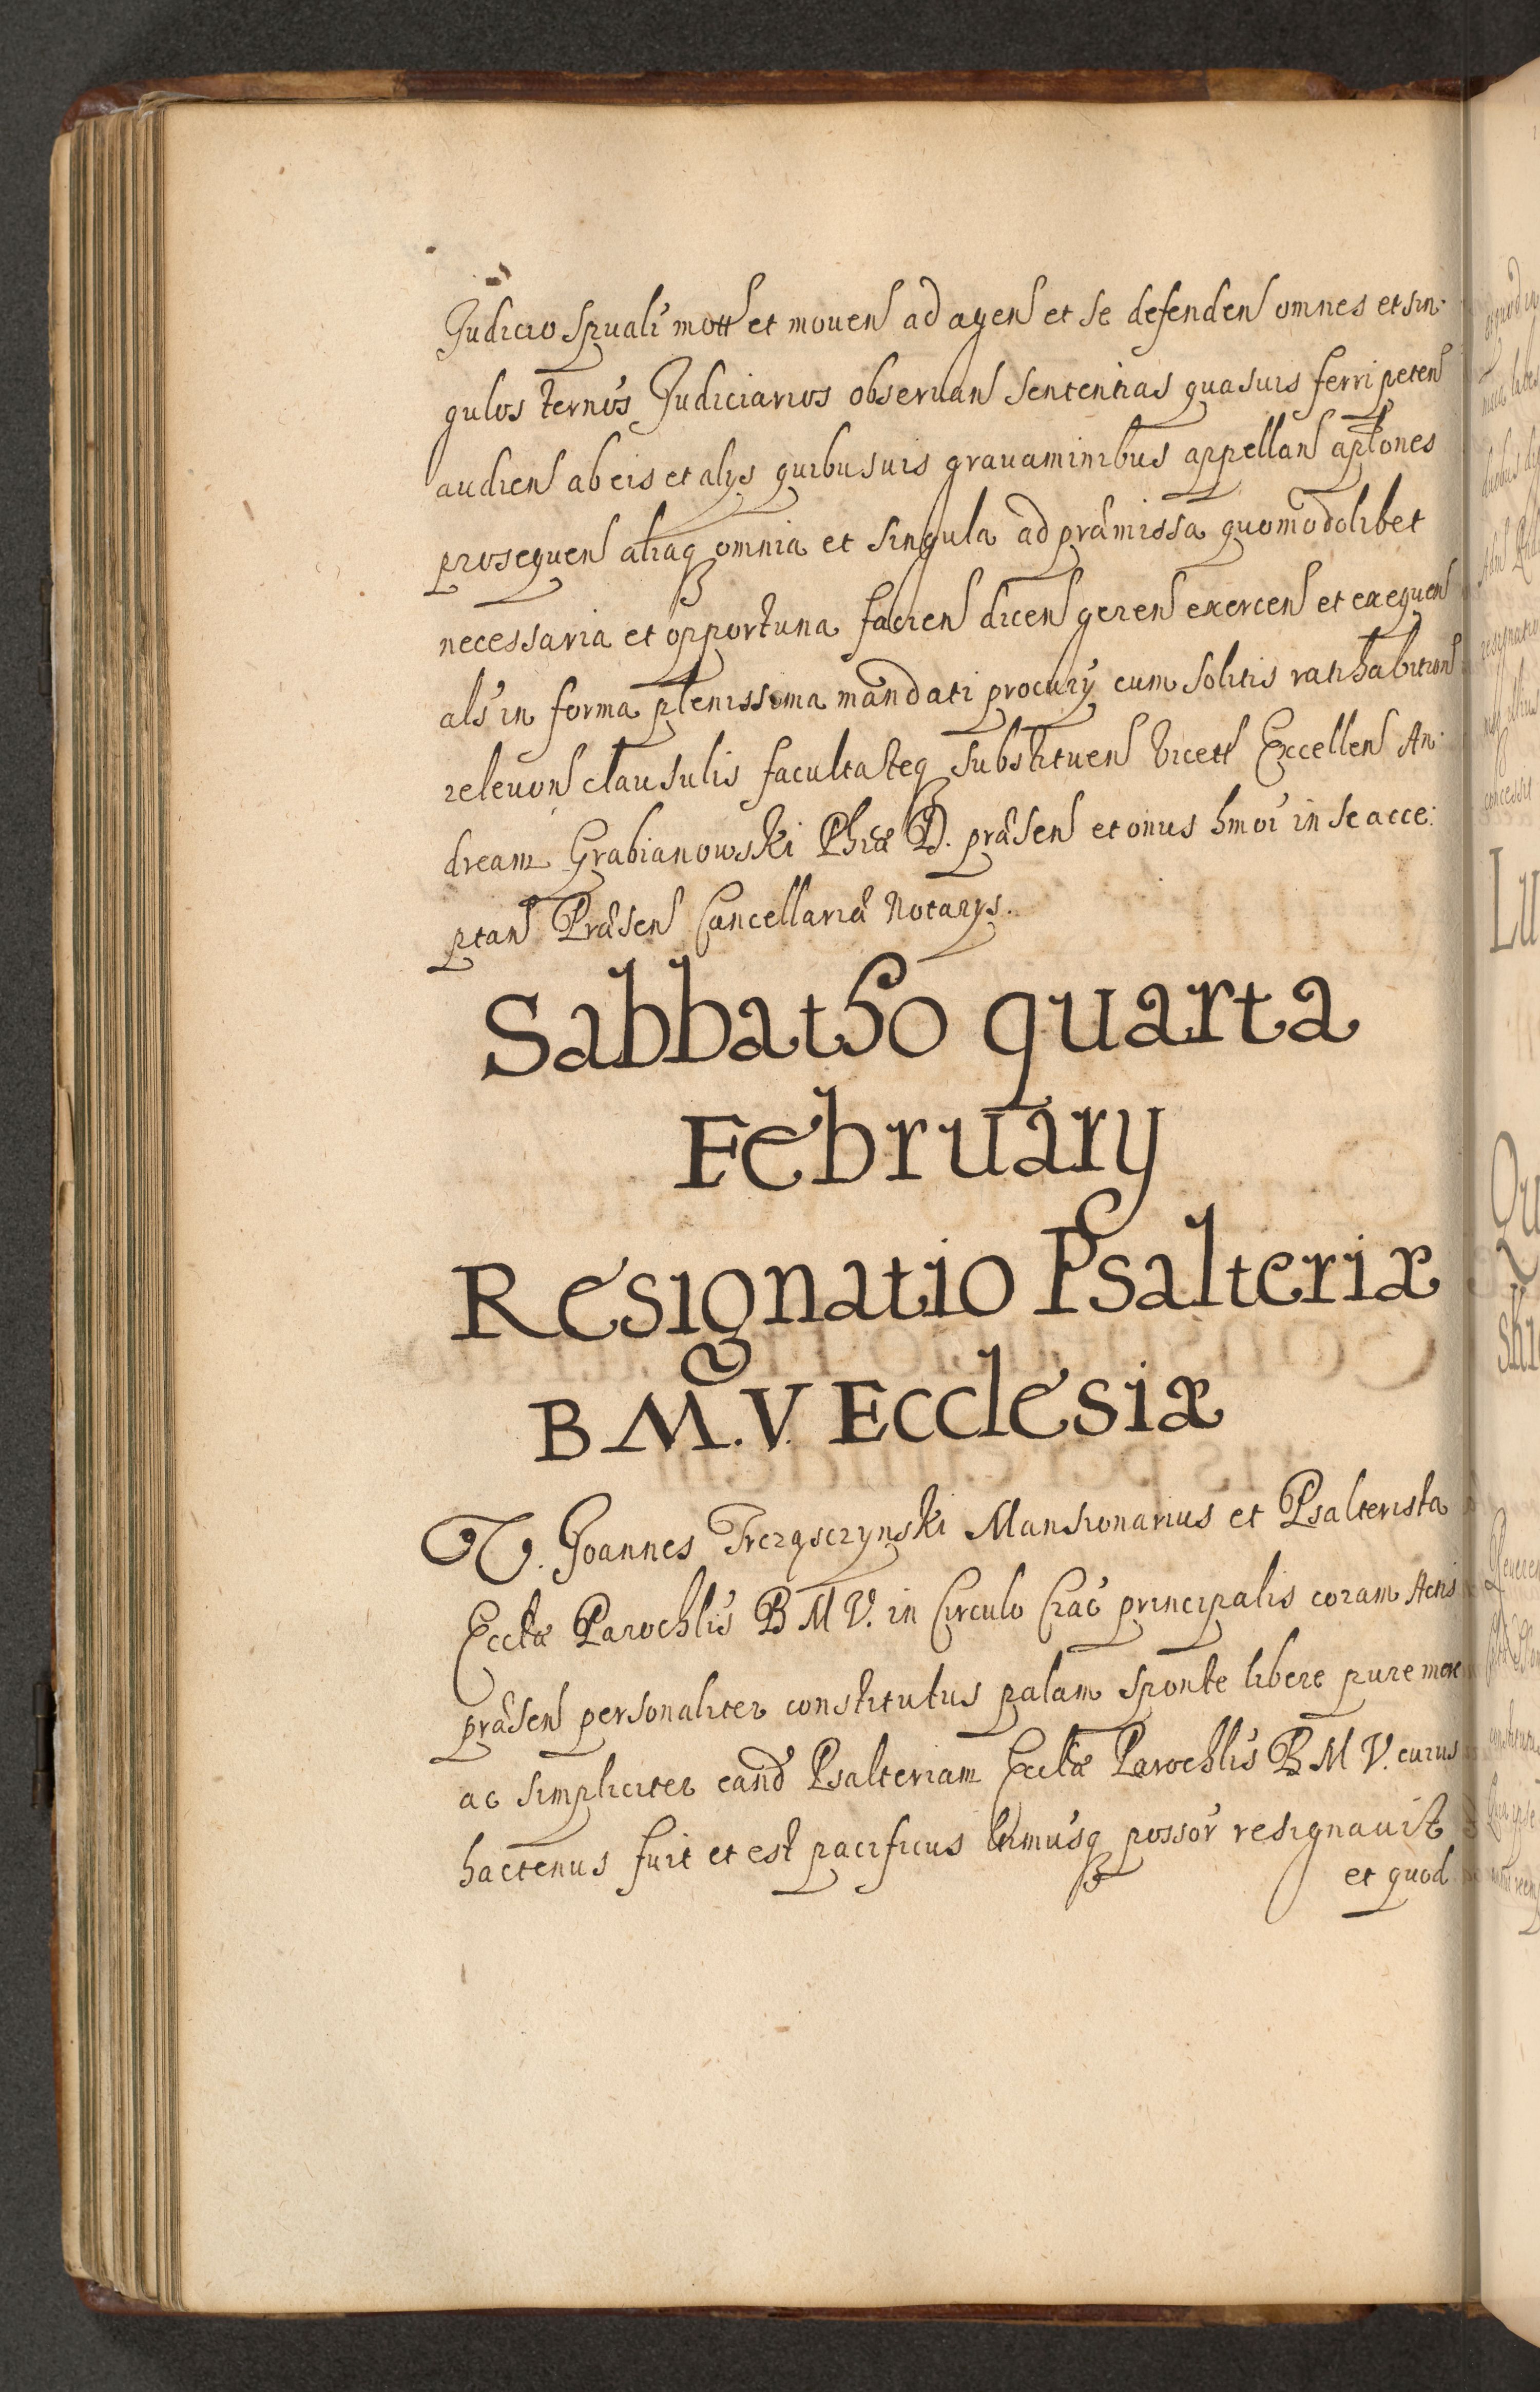 Judicio Spuali mott et mouen ad agen et se defenden omnes et sin-
gulos ternos Judiciarios obseruan sententias quasuis ferri peten
audien ab eis et alys quibusuis grauaminibus appellan aplones
prosequen aliaq omnia et singula ad præmissa quomodolibet
necessaria et opportuna facien dicen geren exercen et exequen
als in forma plenissima mandati procurÿ cum solitis ratihabition
releuon clausulis facultateq substituen Excellen An-
dream Grabianowski Phiæ D. præsen et onus hmoi in se acce:
ptan Præsen Cancellariæ Notarys.
Sabbatho quarta
February
Resignatio Psalteriæ
B M. V. Ecclesiæ
V. Joannes Mansionarius et Psalterista
Ecclæ Parochlis B M V. in Circulo Crac principalis coram Actis
præsen personaliter constitutus palam sponte libere pure mere
ac simpliciter eand Psalteriam Ecclæ Parochlis B M V. cuius
hactenus fuit et est pacificus possor resignauit
et quod
Lu
Qu
ski